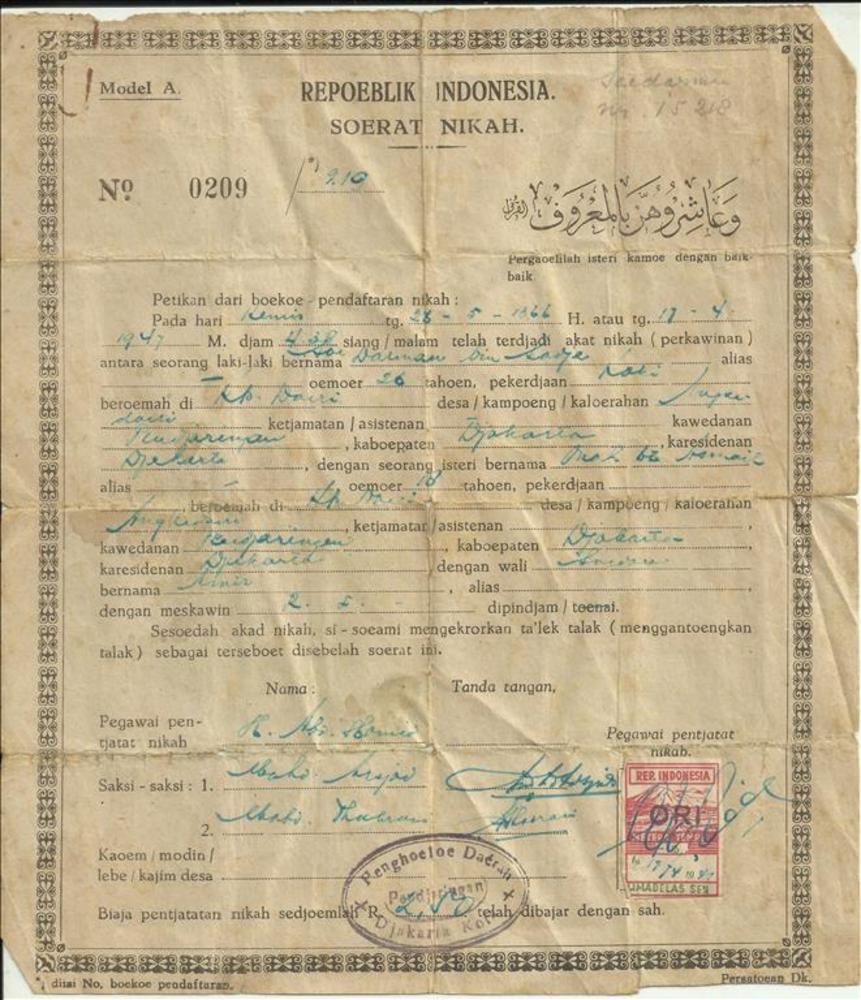 Model A.
REPOEBLIK INDONESIA.
SOERAT NIKAH.
Nº 0209 / *) 910
15218
وَعَاشِرُوهُنَّ بِالْمَعْرُوفِ (القرآن)
Pergaoelilah isteri kamoe dengan baik-
baik.
Petikan dari boekoe - pendaftaran nikah :
Pada hari Kemis tg. 28 - 5 - 1366 H. atau tg. 17 - 4 -
1947 M. djam 4.30 siang / malam telah terdjadi akat nikah ( perkawinan )
antara seorang laki-laki bernama Darman bin alias
oemoer 26 tahoen, pekerdjaan
beroemah di Kp. Doeri desa / kampoeng / kaloerahan Angke
doeri ketjamatan / asistenan kawedanan
Pendjaringan , kaboepaten Djakarta , karesidenan
Djakarta , dengan seorang isteri bernama bt Asmail
alias oemoer 18 tahoen, pekerdjaan
, beroemah di Kp. Doeri desa / kampoeng / kaloerahan
Angkedoeri , ketjamatan / asistenan ,
kawedanan Pendjaringan , kaboepaten Djakarta ,
karesidenan Djakarta dengan wali
bernama Amir , alias
dengan meskawin 2. 5. - dipindjam / toenai.
Sesoedah akad nikah, si - soeami mengekrorkan ta'lek talak ( menggantoengkan
talak ) sebagai terseboet disebelah soerat ini.
Nama : Tanda tangan,
Pegawai pen-
tjatat nikah H. Abd.
Pegawai pentjatat
nikah.
Saksi - saksi : 1.
2.
REP. INDONESIA
ORI
17/4 1947
LIMABELAS SEN
Kaoem / modin /
lebe / kajim desa
Penghoeloe Daerah
Pendjaringan
Djakarta Kota
Biaja pentjatatan nikah sedjoemlah R. 2,50 telah dibajar dengan sah.
*) diisi No. boekoe pendaftaran.
Persatoean Dk.